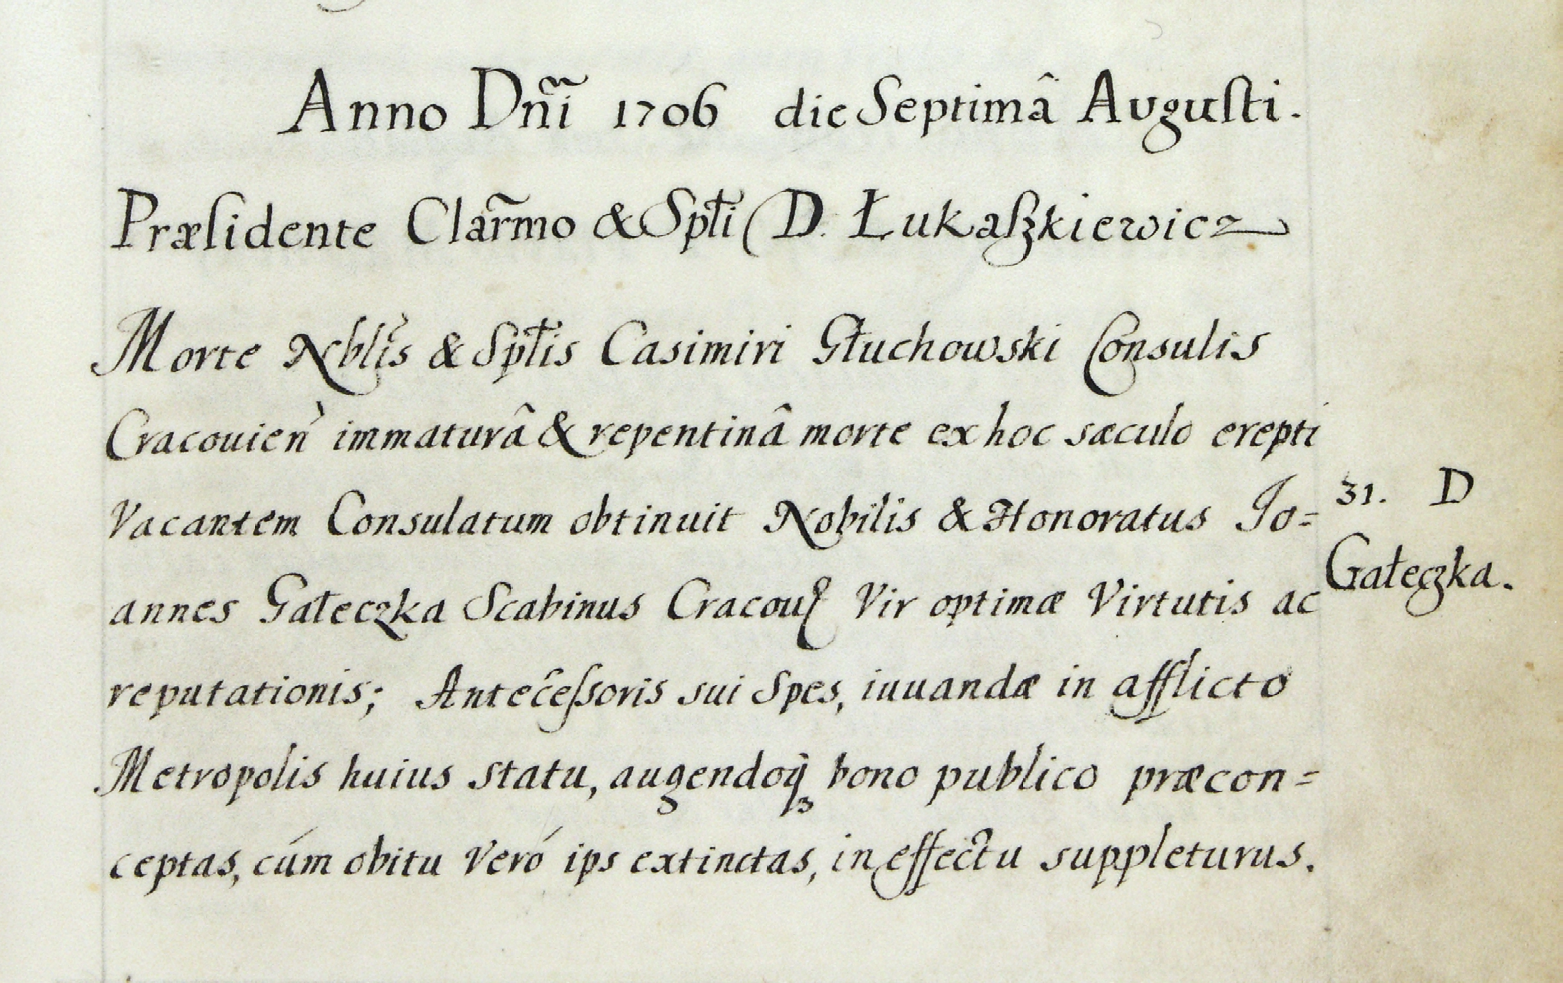 Anno Dñi 1706 die Septimâ Augusti.
Præsidente Clar̃mo & Spłi D. Łukaszkiewicz
Morte Nblis & Spłis Casimiri Głuchowski Consulis
Cracouień immaturâ & repentinâ morte ex hoc sæculo erepti
Vacantem Consulatum obtinuit Nobilis & Honoratus Jo=
31. D
annes Gałeczka Scabinus Cracou Vir optimæ Virtutis ac
Gałeczka.
reputationis; Antecessoris sui Spes, iuuandæ in afflicto
Metropolis huius statu, augendoq; bono publico præcon=
ceptas, cúm obitu Veró ips extinctas, in effectu suppleturus.